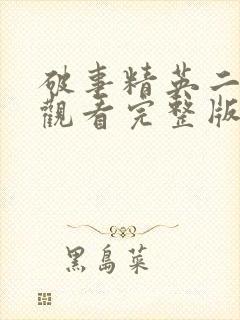 破事精英二
觀看完整版
黑島菜